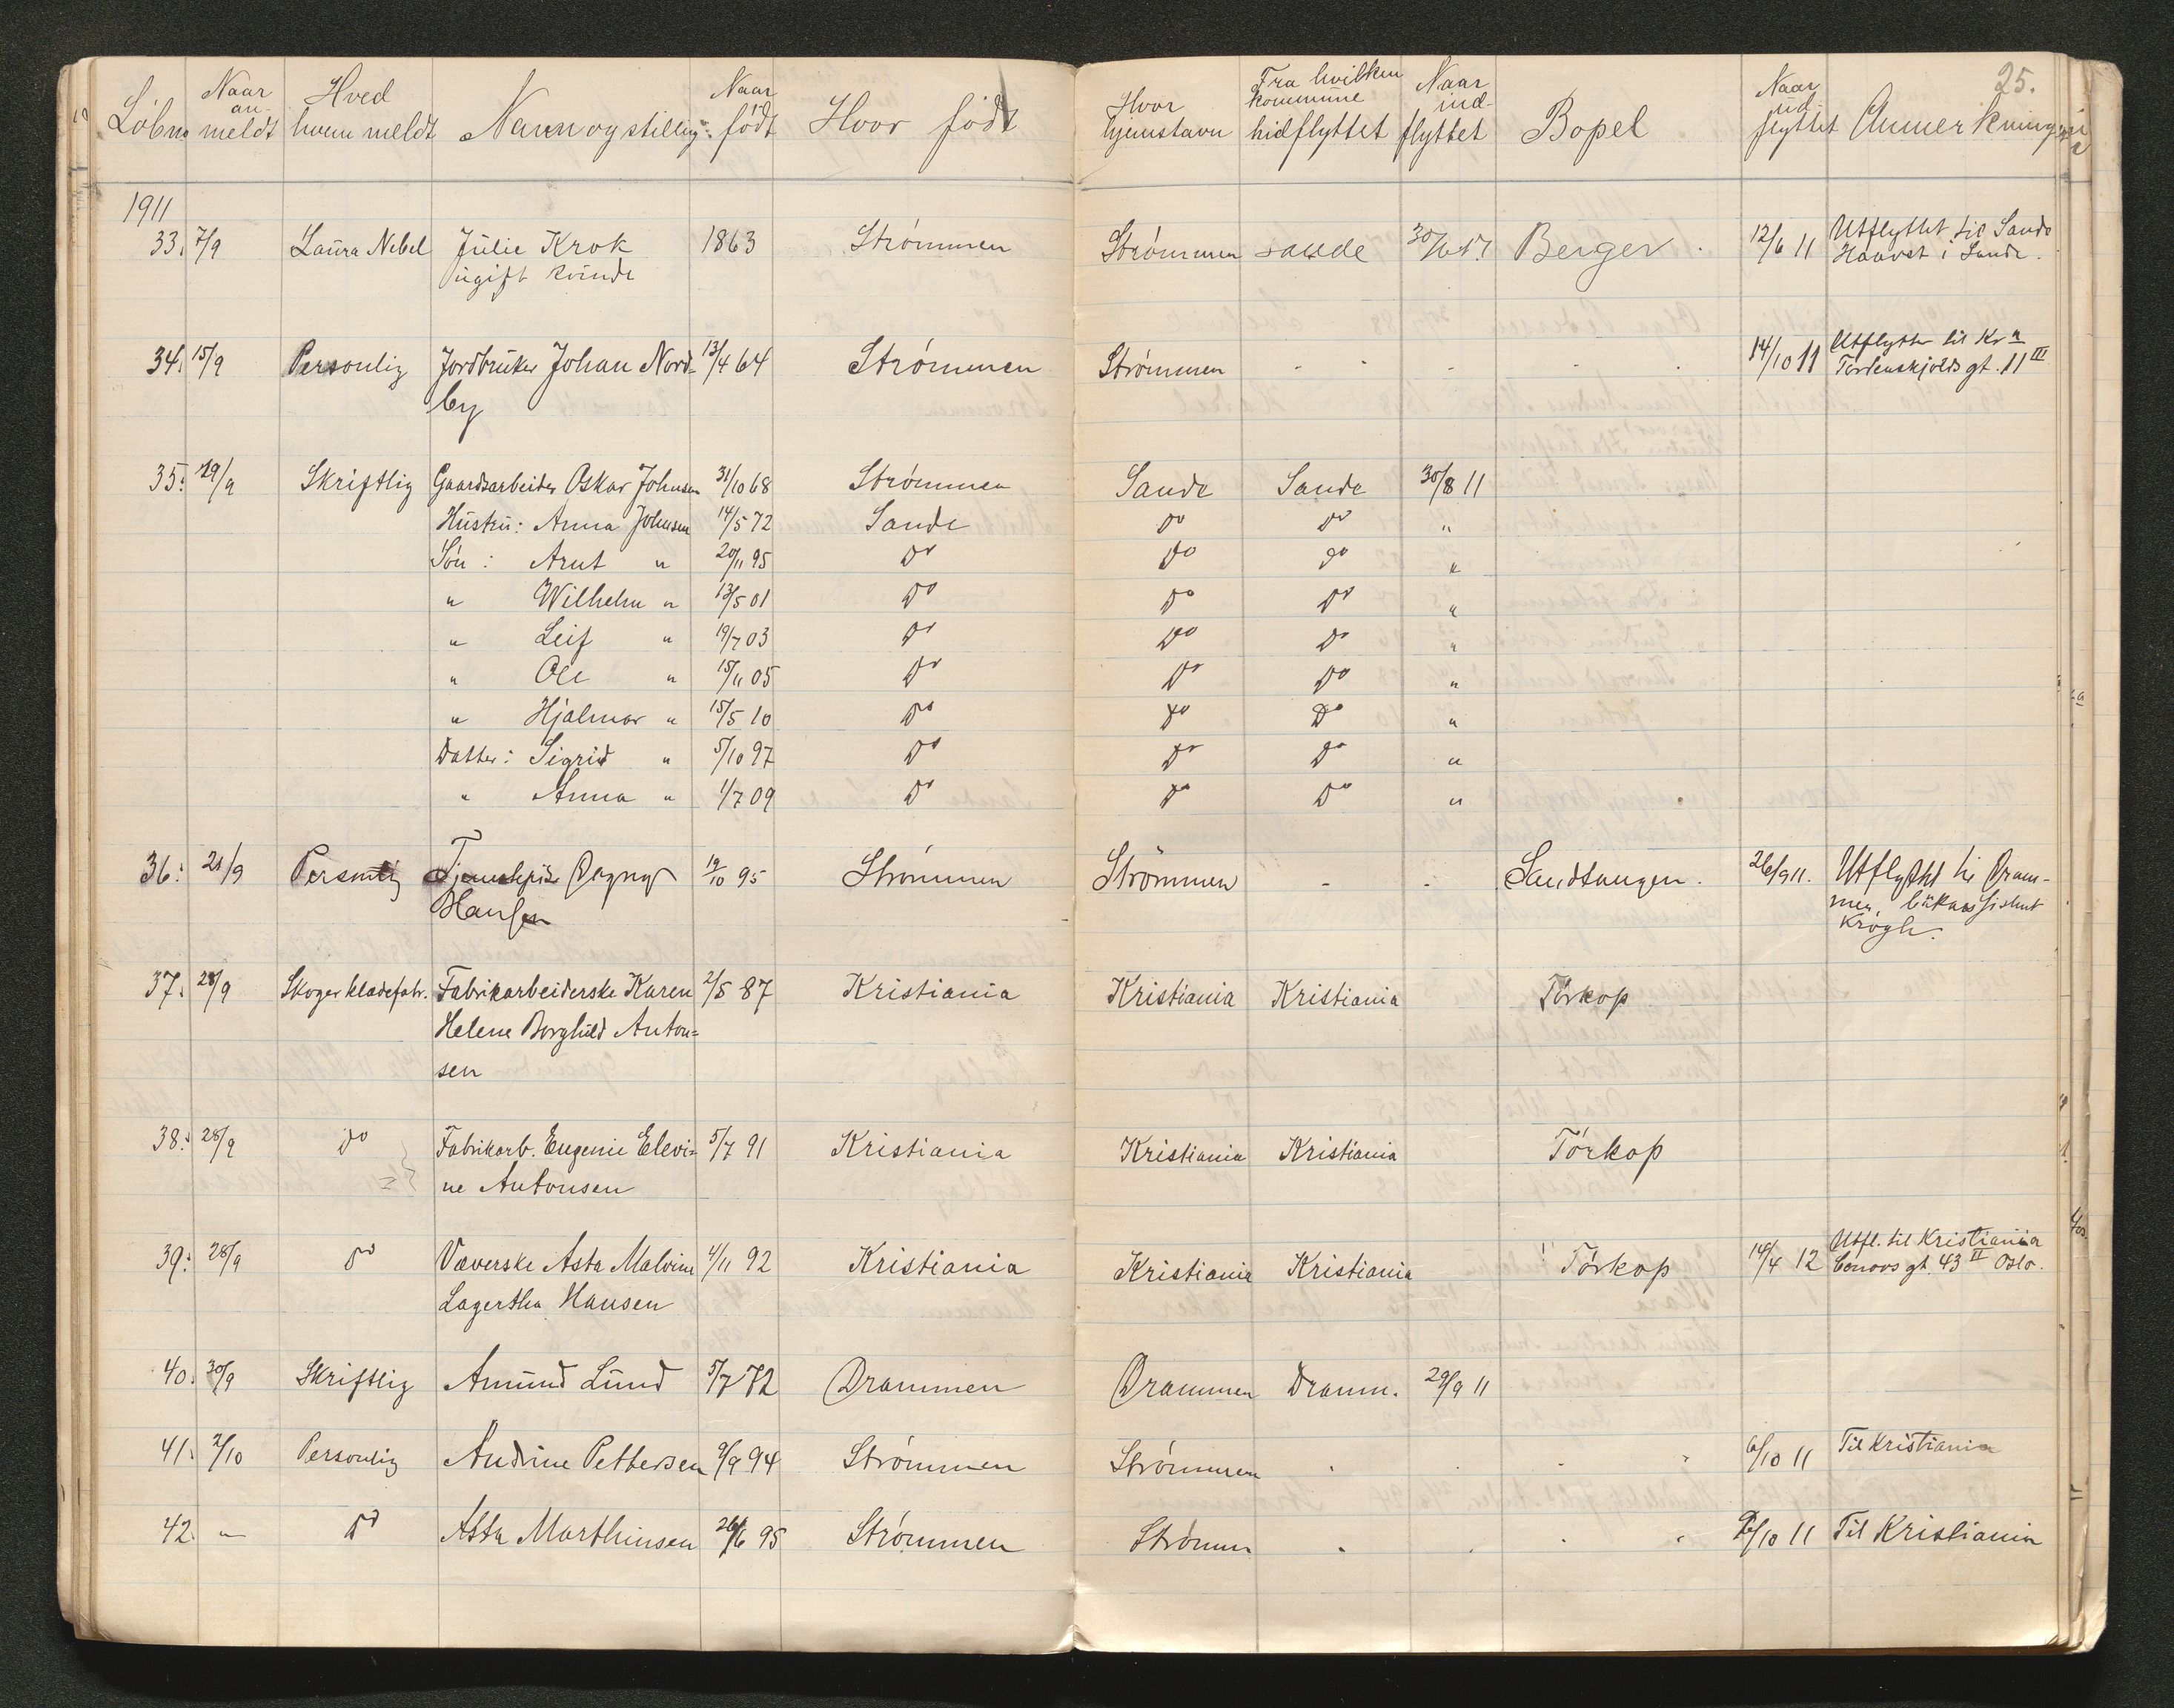 25.
Löbno. Naar anmeldt Hved hvem meldt Navn og stilling. Naar född Hvor född Hvor hjemstavn Fra hvilken kommune hidflyttet Naar indflyttet Bopel Naar udflyttet Anmerkninger
1911
33. 7/9 Laura Nebel Julie Krok 1863 Strömmen Strömmen Sande Berger 12/6 11 Utflyttet til Sande
ugift kvinde i Sande.
34. 15/9 Personlig Jordbruker Johan Nord- 13/4 64 Strömmen Strömmen 14/10 11 Utflytter til Kra
by Tordenskjolds gt. 11 III
35. 19/9 Skriftlig Gaardsarbeider Oskar Johnsen 31/10 68 Strömmen Sande Sande 30/8 11
Hustru: Anna Johnsen 14/5 72 Sande Do Do "
Sön : Arnt " 20/11 95 Do Do Do "
" Wilhelm " 13/5 01 Do Do Do "
" Leif " 19/7 03 Do Do Do "
" Ole " 15/11 05 Do Do Do "
" Hjalmar " 15/5 10 Do Do Do "
Datter: Sigrid " 5/10 97 Do Do Do "
" Anna " 1/7 09 Do Do Do "
36. 21/9 Personlig Tjenestepike Dagny 19/10 95 Strömmen Strömmen - - Sandtangen. 26/9 11. Utflyttet til Dram-
Hansen men,
Krogh.
37. 28/9 Skoger kladefabr. Fabrikarbeiderske Karen 2/5 87 Kristiania Kristiania Kristiania Törkop
Helene Borghild Anton-
sen
38. 28/9 Do Fabrikarb. Eugenie Elevi- 5/7 91 Kristiania Kristiania Kristiania Törkop
ne Antonsen
39. 28/9 Do Væverske Asta Malvine 4/11 92 Kristiania Kristiania Kristiania Törkop 14/4 12 Utfl. til Kristiania
Lagertha Hansen gt. 43 II Oslo.
40. 30/9 Skriftlig Amund Lund 5/7 72 Drammen Drammen Dramm. 29/9 11
41. 2/10 Personlig Andrine Pettersen 9/9 94 Strömmen Strömmen 6/10 11 Til Kristiania
42. " Do Asta Marthinsen 26/6 95 Strömmen Strömm 6/10 11 Til Kristiania